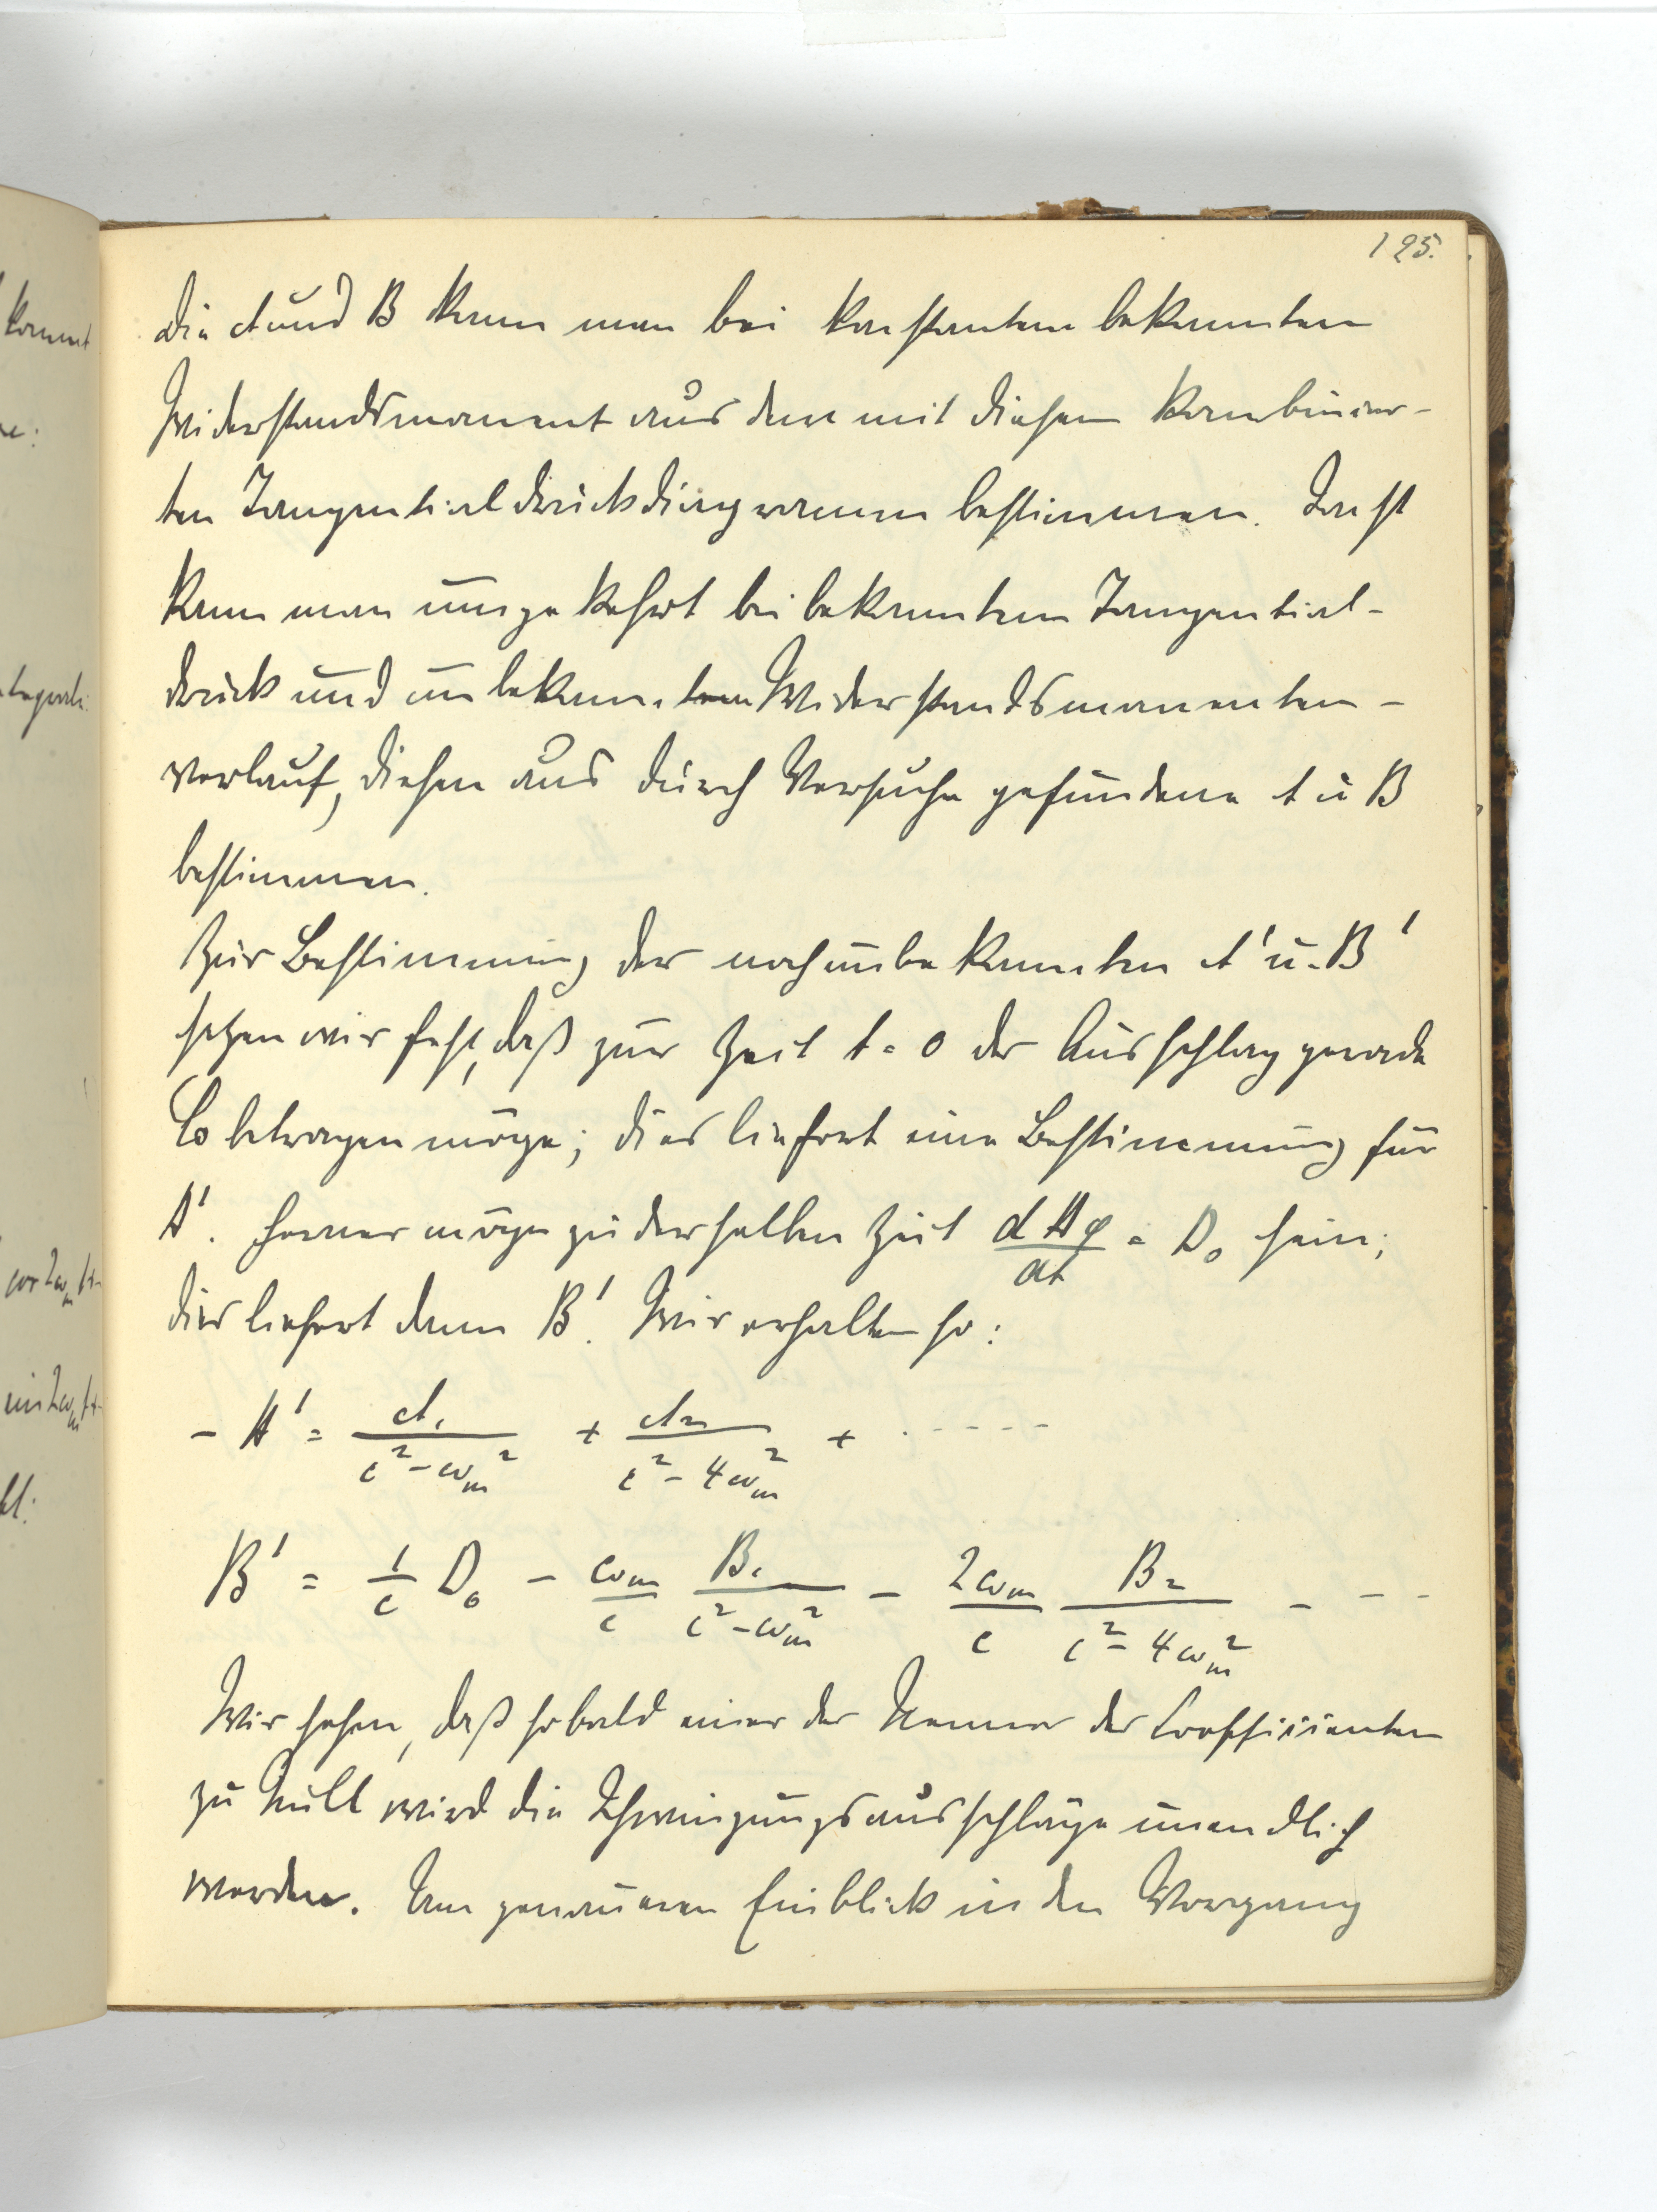 125.
Die A und B kann man bei konstantem bekannten
Widerstandsmoment aus dem mit diesem kombinier-
ten Tangentialdruckdiagramm bestimmen. Sonst
kann man umgekehrt bei bekanntem Tangential-
druck und unbekanntem Widerstandsmomenten-
verlauf, diesen aus durch Versuche gefundene A u B
bestimmen.
Zur Bestimmung der noch unbekannten A' u. B'
setzen wir fest, daß zur Zeit t = 0 der Ausschlag gerade
C0 betragen möge; dies liefert eine Bestimmung für
A'. Ferner möge zu derselben Zeit dΔφ/dt = D₀ sein;
dies liefert dann B'. Wir erhalten so:
- A' = A₁/(c² - ωm²) + A₂/(c² - 4ωm²) + . - - - -
B' = 1/c D₀ - ωm/c B₁/(c² - ωm²) - 2ωm/c B₂/(c² - 4ωm²) - - - -
Wir sehen, daß sobald einer der Nenner der Coeffizienten
zu Null wird die Schwingungsausschläge unendlich
werden. Um genaueren Einblick in den Vorgang
kommt